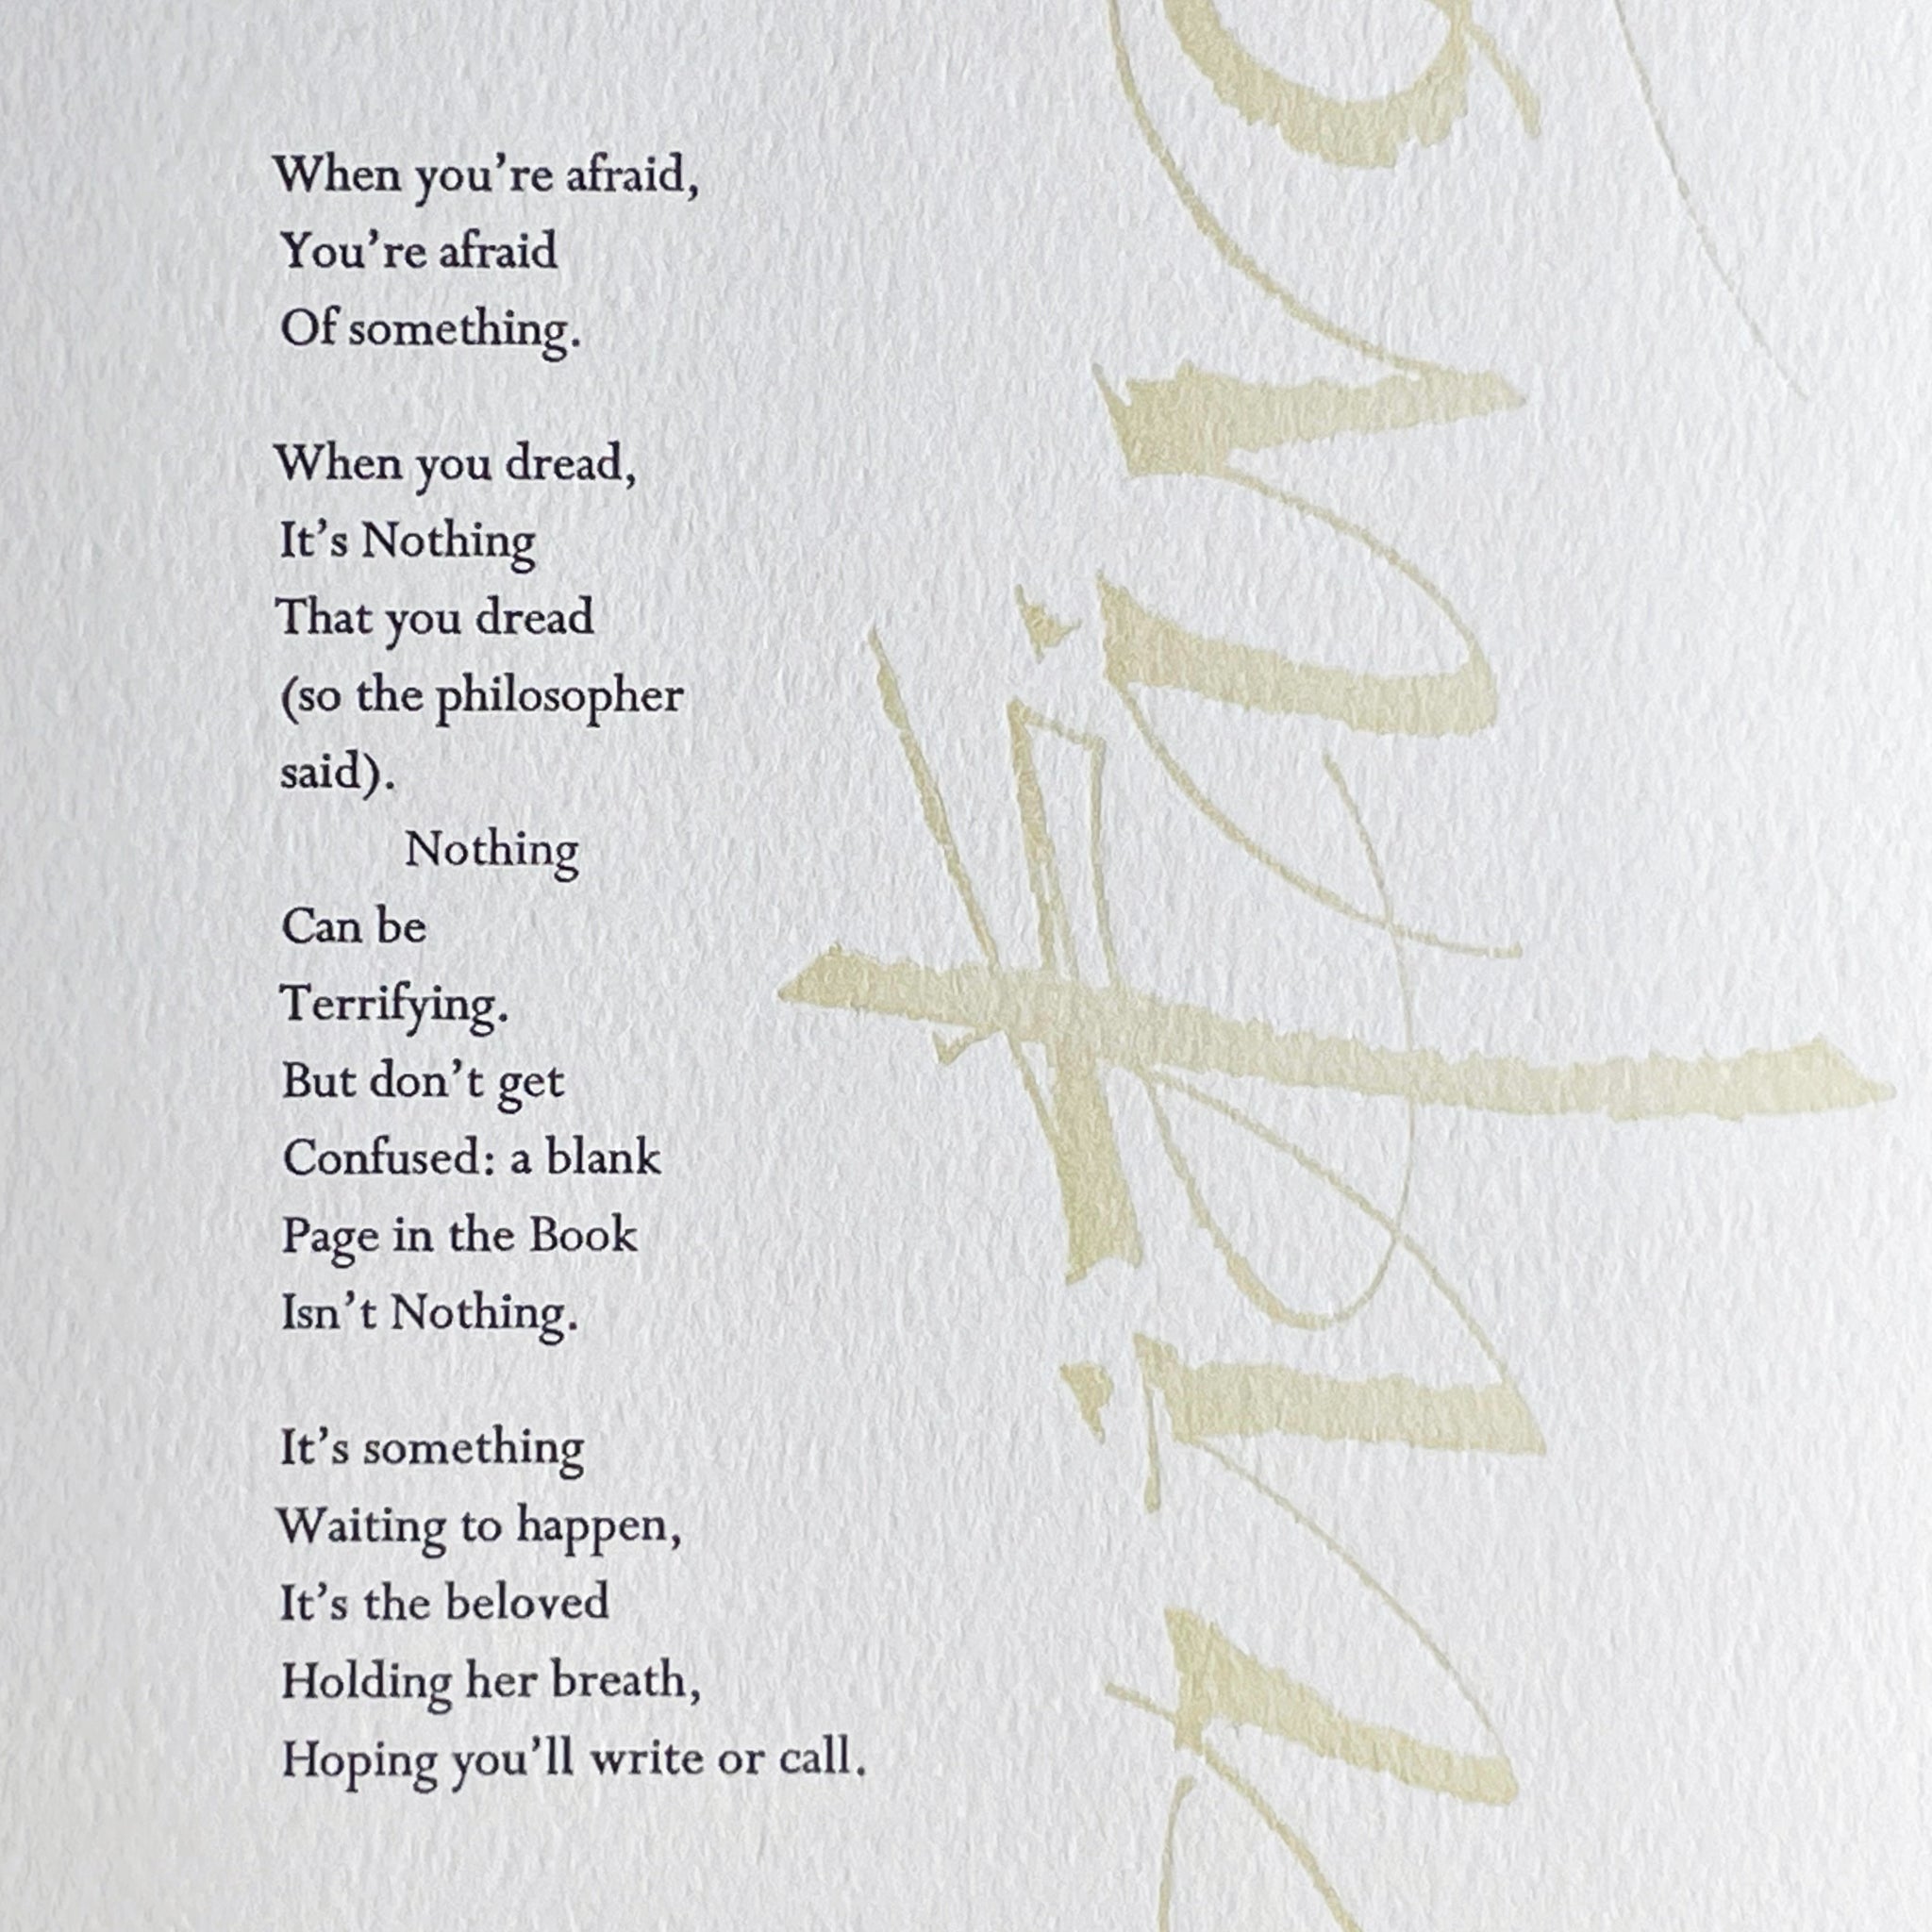 When you're afraid,
You're afraid
Of something.
When you dread,
It's Nothing
That you dread
(so the philosopher
said).
Nothing
Can be
Terrifying.
But don't get
Confused: a blank
Page in the Book
Isn't Nothing.
It's something
Waiting to happen,
It's the beloved
Holding her breath,
Hoping you'll write or call.